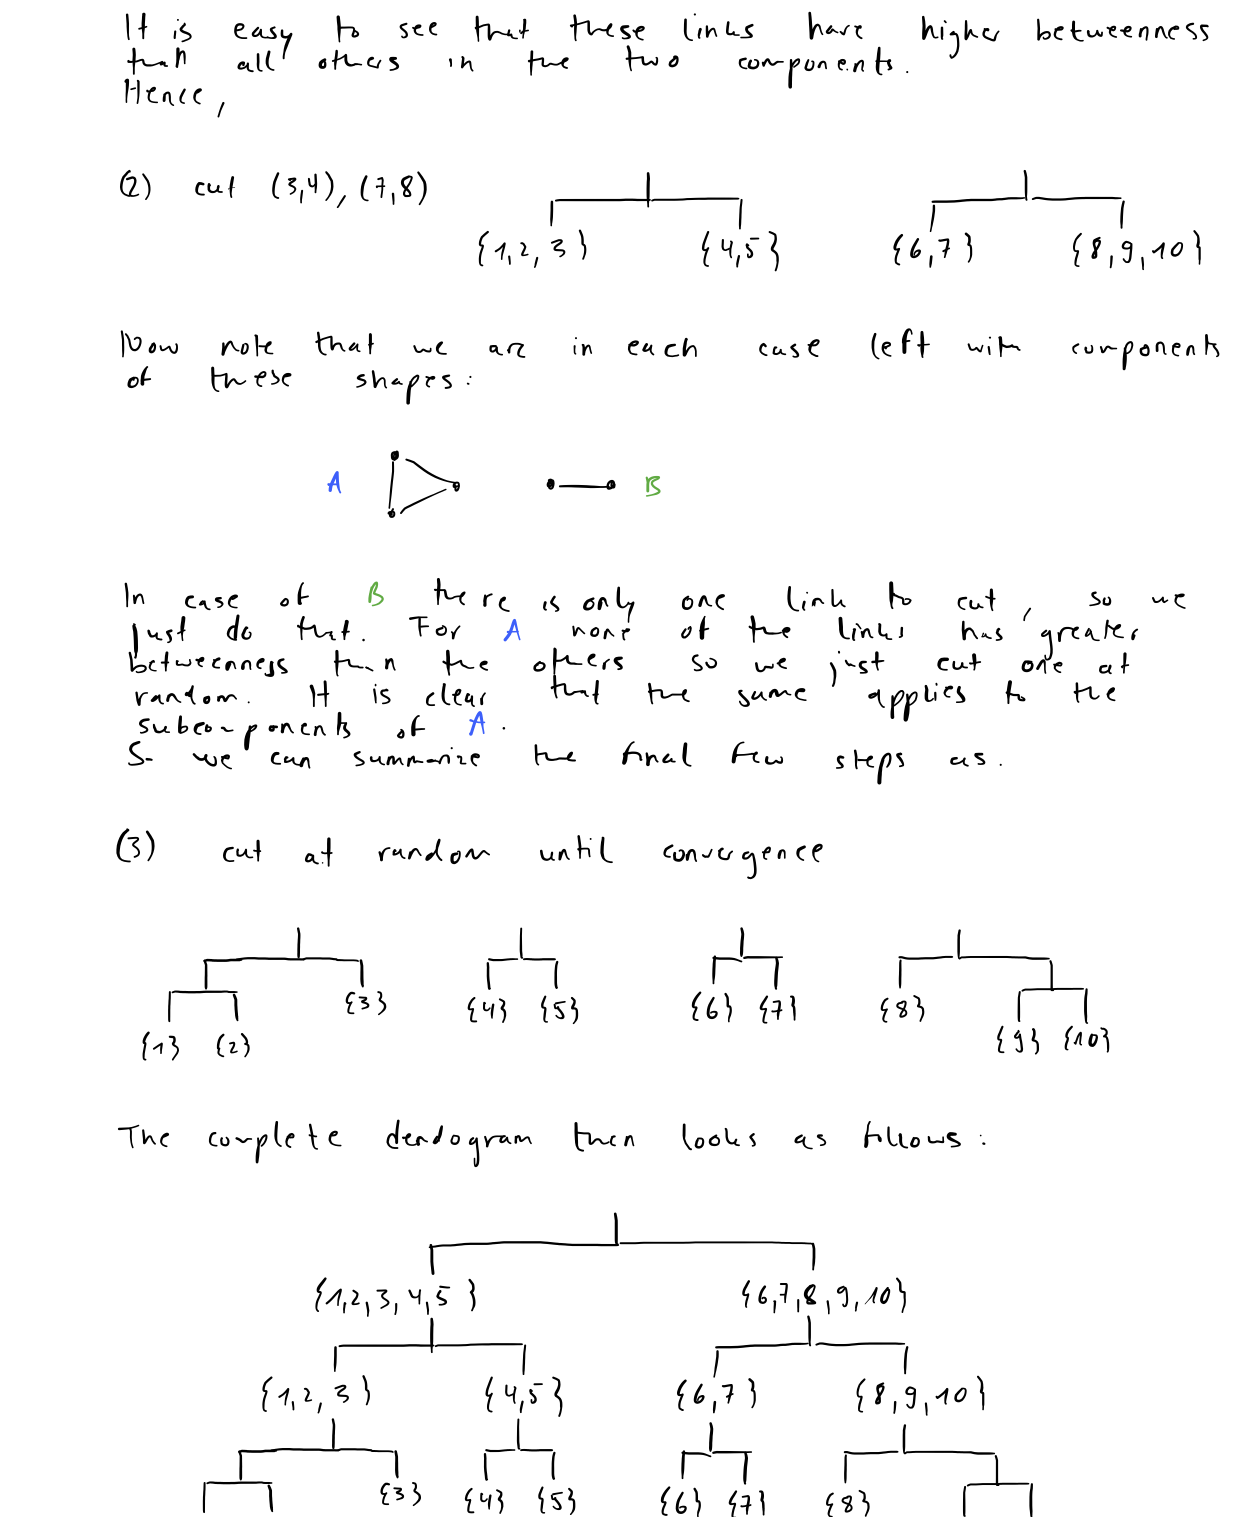 It is easy to see that these links have higher betweenness
than all others in the two components.
Hence,
(2) cut (3,4), (7,8)
{1,2,3} {4,5} {6,7} {8,9,10}
Now note that we are in each case left with components
of these shapes:
A B
In case of B there is only one link to cut, so we
just do that. For A none of the links has greater
betweenness than the others so we just cut one at
random. It is clear that the same applies to the
subcomponents of A.
So we can summarize the final few steps as.
(3) cut at random until convergence
{3} {4} {5} {6} {7} {8}
{1} {2} {9} {10}
The complete dendogram then looks as follows:
{1,2,3,4,5} {6,7,8,9,10}
{1,2,3} {4,5} {6,7} {8,9,10}
{3} {4} {5} {6} {7} {8}